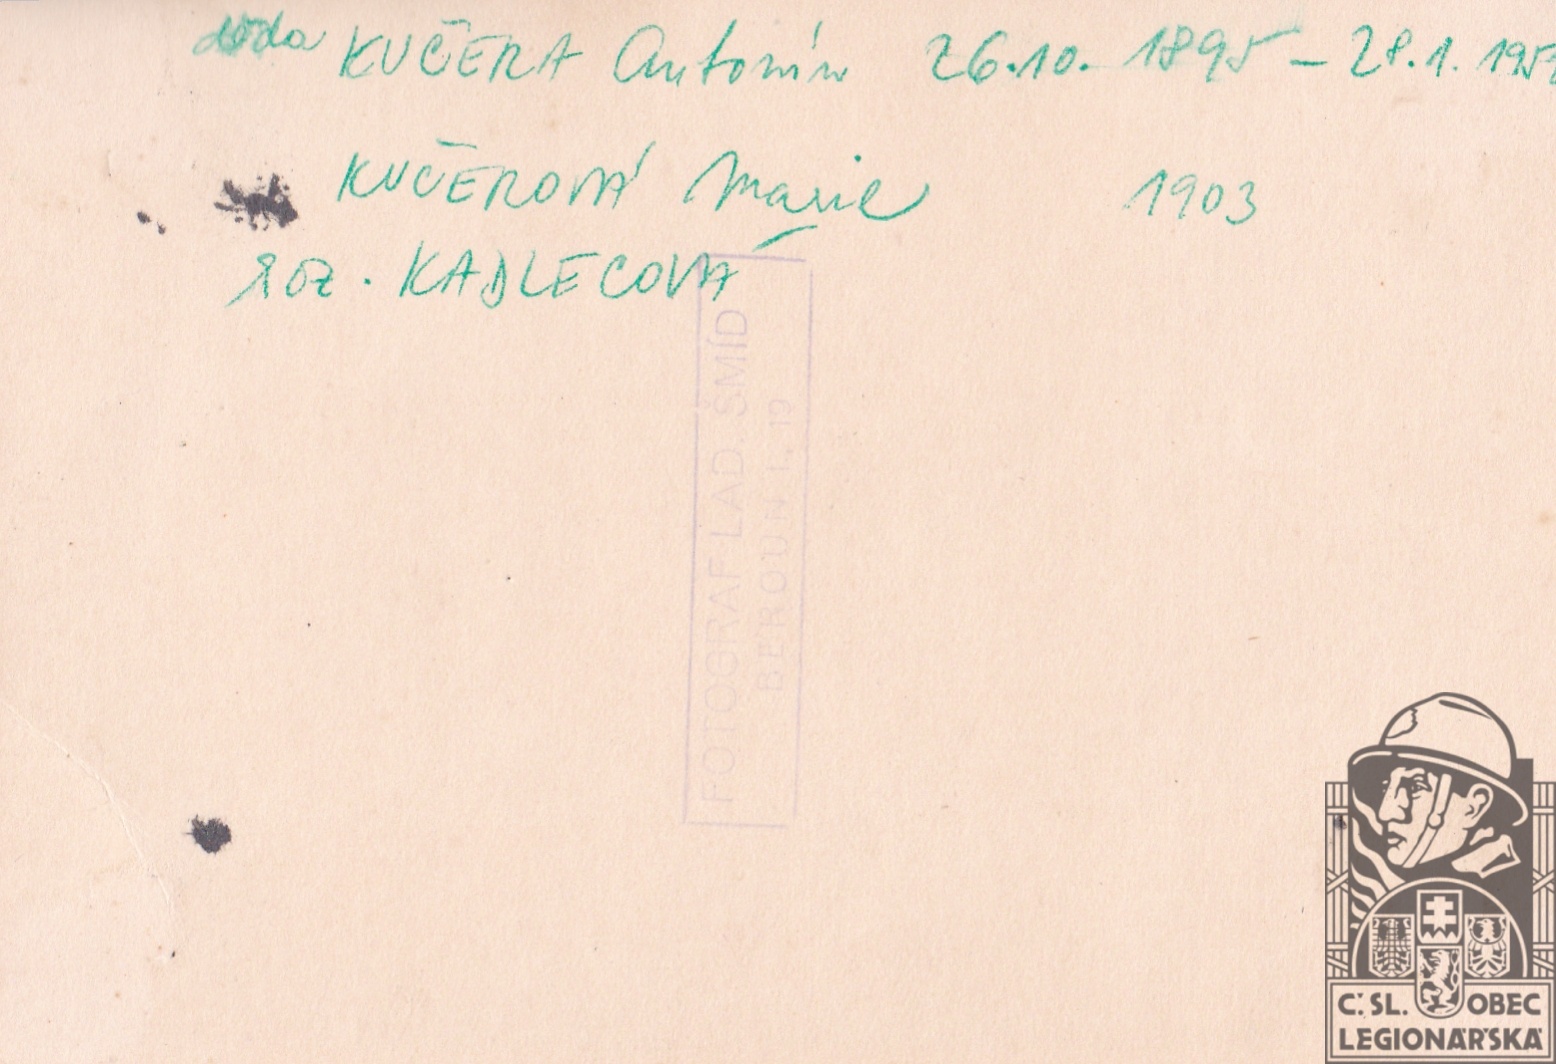 děda KUČERA Antonín 26.10. 1895 – 28.1.
KUČEROVÁ Marie 1903
roz. KADLECOVÁ
FOTOGRAF LAD. ŠMÍD
BEROUN I, 19
Č. SL. OBEC
LEGIONÁŘSKÁ